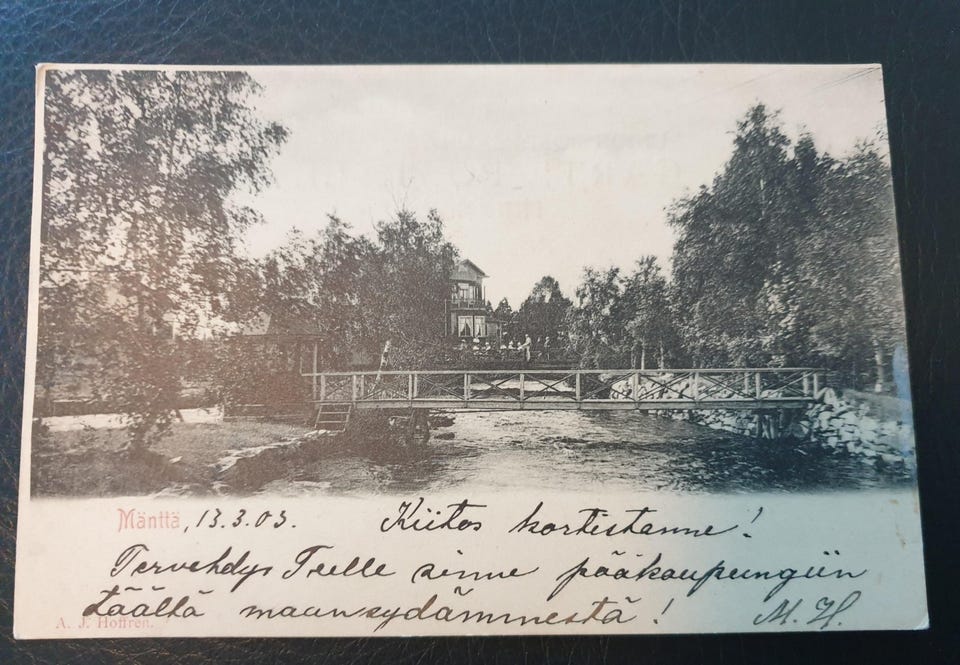 Mänttä, 13.3.03. Kiitos kortistanne!
Tervehdys Teille sinne pääkaupungiin
täältä maansydämmestä! M. H.
A. J. Hoffrén.